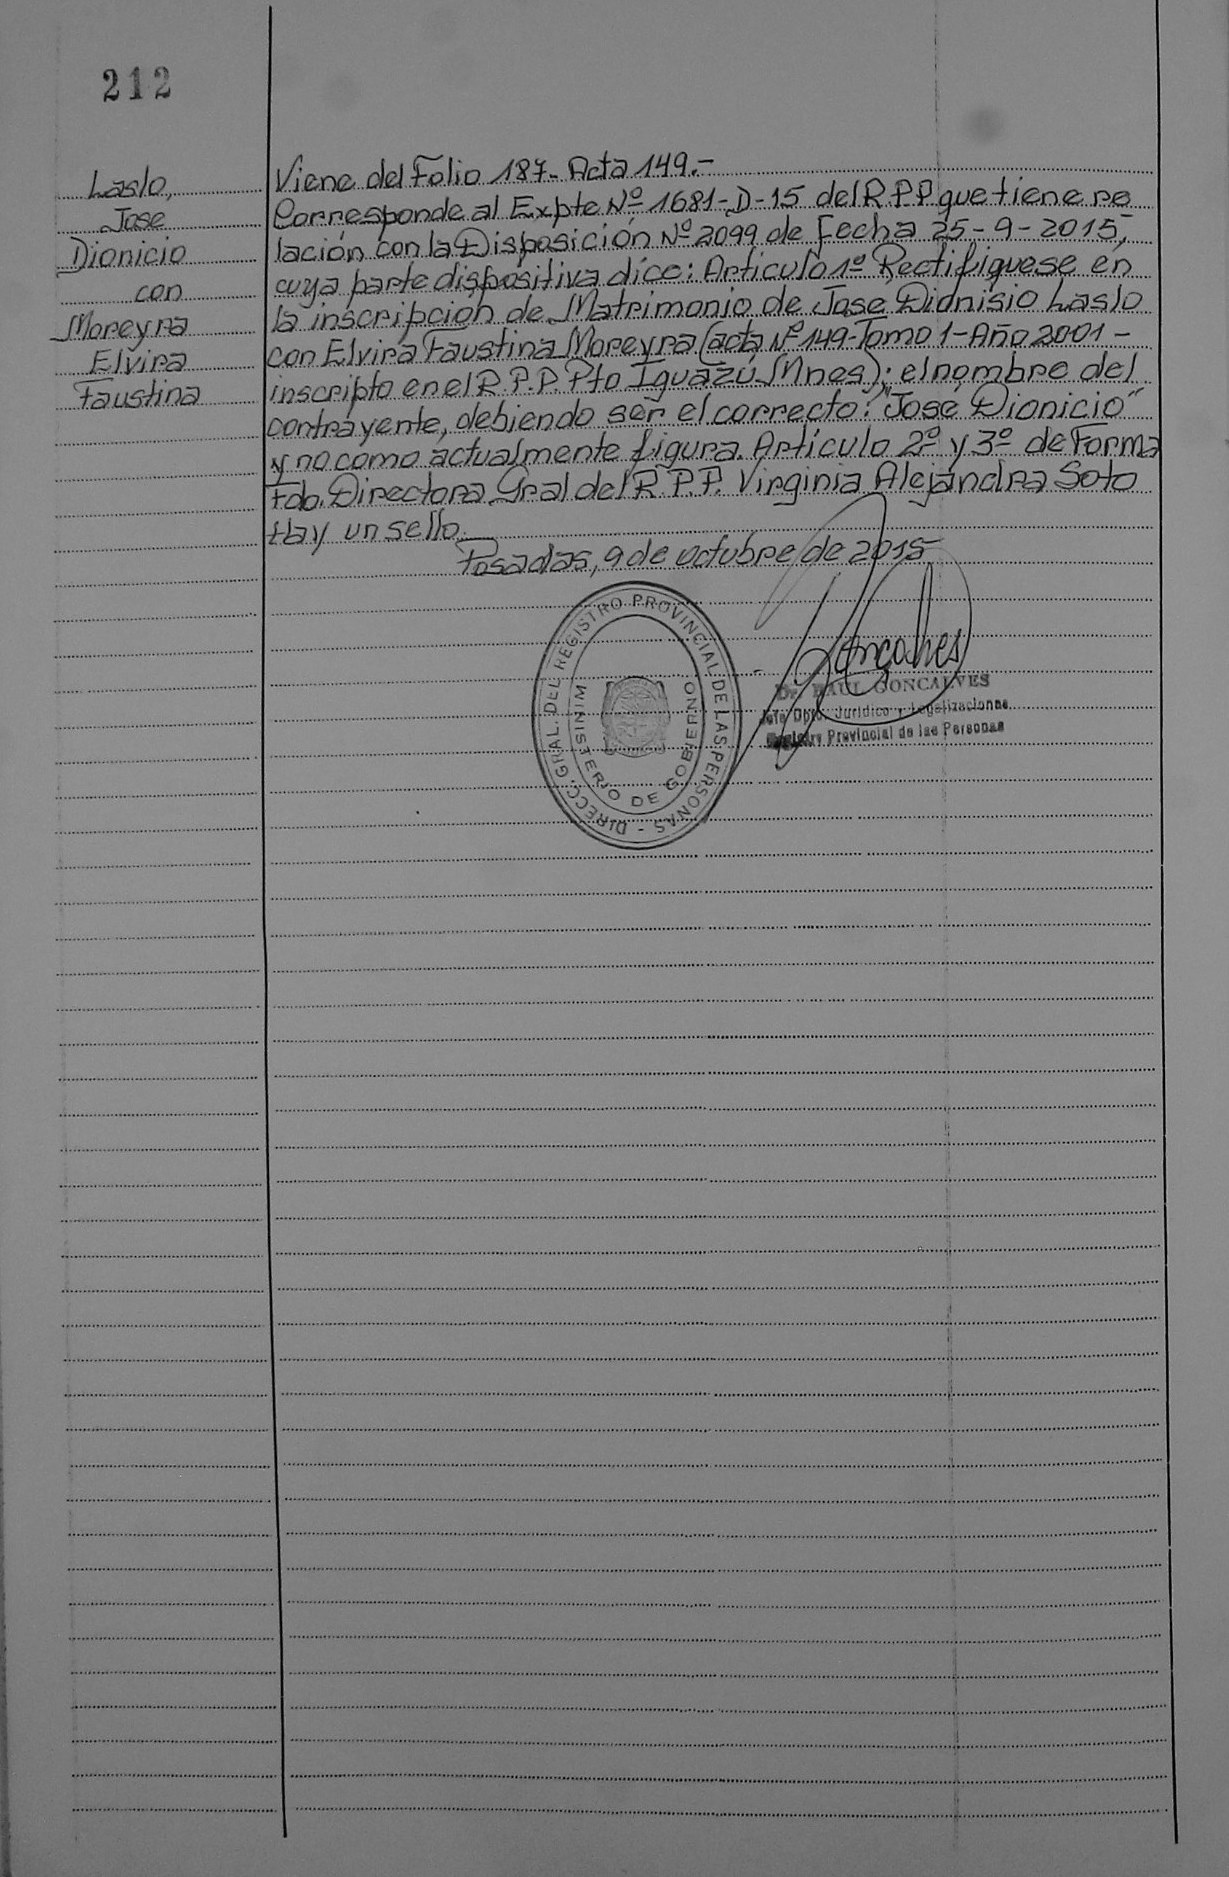 212
Laslo,
Jose
Dionicio
con
Moreyra
Elvira
Faustina
Viene del Folio 187- Acta 149.-
Corresponde al Expte Nº 1681-D-15 del R P P que tiene re
lación con la Disposición Nº 2099 de Fecha 25-9-2015,
cuya parte dispositiva dice: Articulo 1º Rectifiquese en
la inscripcion de Matrimonio de Jose Dionisio Laslo
con Elvira Faustina Moreyra (acta Nº 149-Tomo 1-Año 2001-
inscripto en el R.P.P. Pto Iguazú Mnes); el nombre del
contrayente, debiendo ser el correcto: "Jose Dionicio"
y no como actualmente figura. Artículo 2º y 3º de Forma
Fdo. Directora Gral del R.P.P. Virginia Alejandra Soto
Hay un sello.
Posadas, 9 de octubre de 2015
DIRECC. GRAL. DEL REGISTRO PROVINCIAL DE LAS PERSONAS -
MINISTERIO DE GOBIERNO
Goncalves
Dr. RAUL GONCALVES
Jefe Dpto. Jurídico y Legalizaciones
Registro Provincial de las Personas